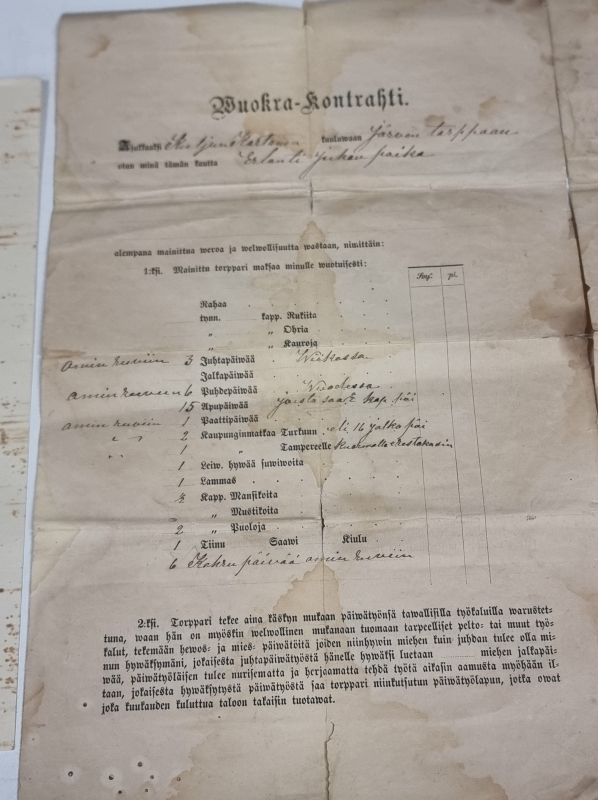 Wuokra-Kontrahti.
Asukkaaksi kuuluwaan Järwen torppaan
otan minä tämän kautta Erlanti Juhan poika
alempana mainittua weroa ja welwollisuutta wastaan, nimittäin:
1:ksi. Mainittu torppari maksaa minulle wuotuisesti:
Smf. pi.
Rahaa
tynn. kapp. Rukiita
" " Ohria
" " Kauroja
3 Juhtapäiwää Wiikossa
Jalkapäiwää
6 Puhdepäiwää Wuodessa
15 Apupäiwää joista saa 2 kap päi
1 Paattipäiwää
2 Kaupunginmatkaa Turkuun eli 16 jalka päi
1 " Tampereelle
1 Leiw. hywää juwiwoita
1 Lammas
Kapp. Mansikoita
" Mustikoita
2 " Puoloja
1 Tiinu Saawi Kiulu
6 päivää
2:ksi. Torppari tekee aina käskyn mukaan päiwätyönsä tawallisilla työkaluilla warustet-
tuna, waan hän on myöskin welwollinen mukanaan tuomaan tarpeelliset pelto- tai muut työ-
kalut, tekemään hewos- ja mies- päiwätöitä joiden niinhywin miehen kuin juhdan tulee olla mi-
nun hywäksymäni, jokaisesta juhtapäiwätyöstä hänelle hywäksi luetaan miehen jalkapäi-
wää, päiwätyöläisen tulee nurisematta ja herjaamatta tehdä työtä aikasin aamusta myöhään il-
taan, jokaisesta hywäksytystä päiwätyöstä saa torppari niinkutsutun päiwätyölapun, jotka owat
joka kuukauden kuluttua taloon takaisin tuotawat.